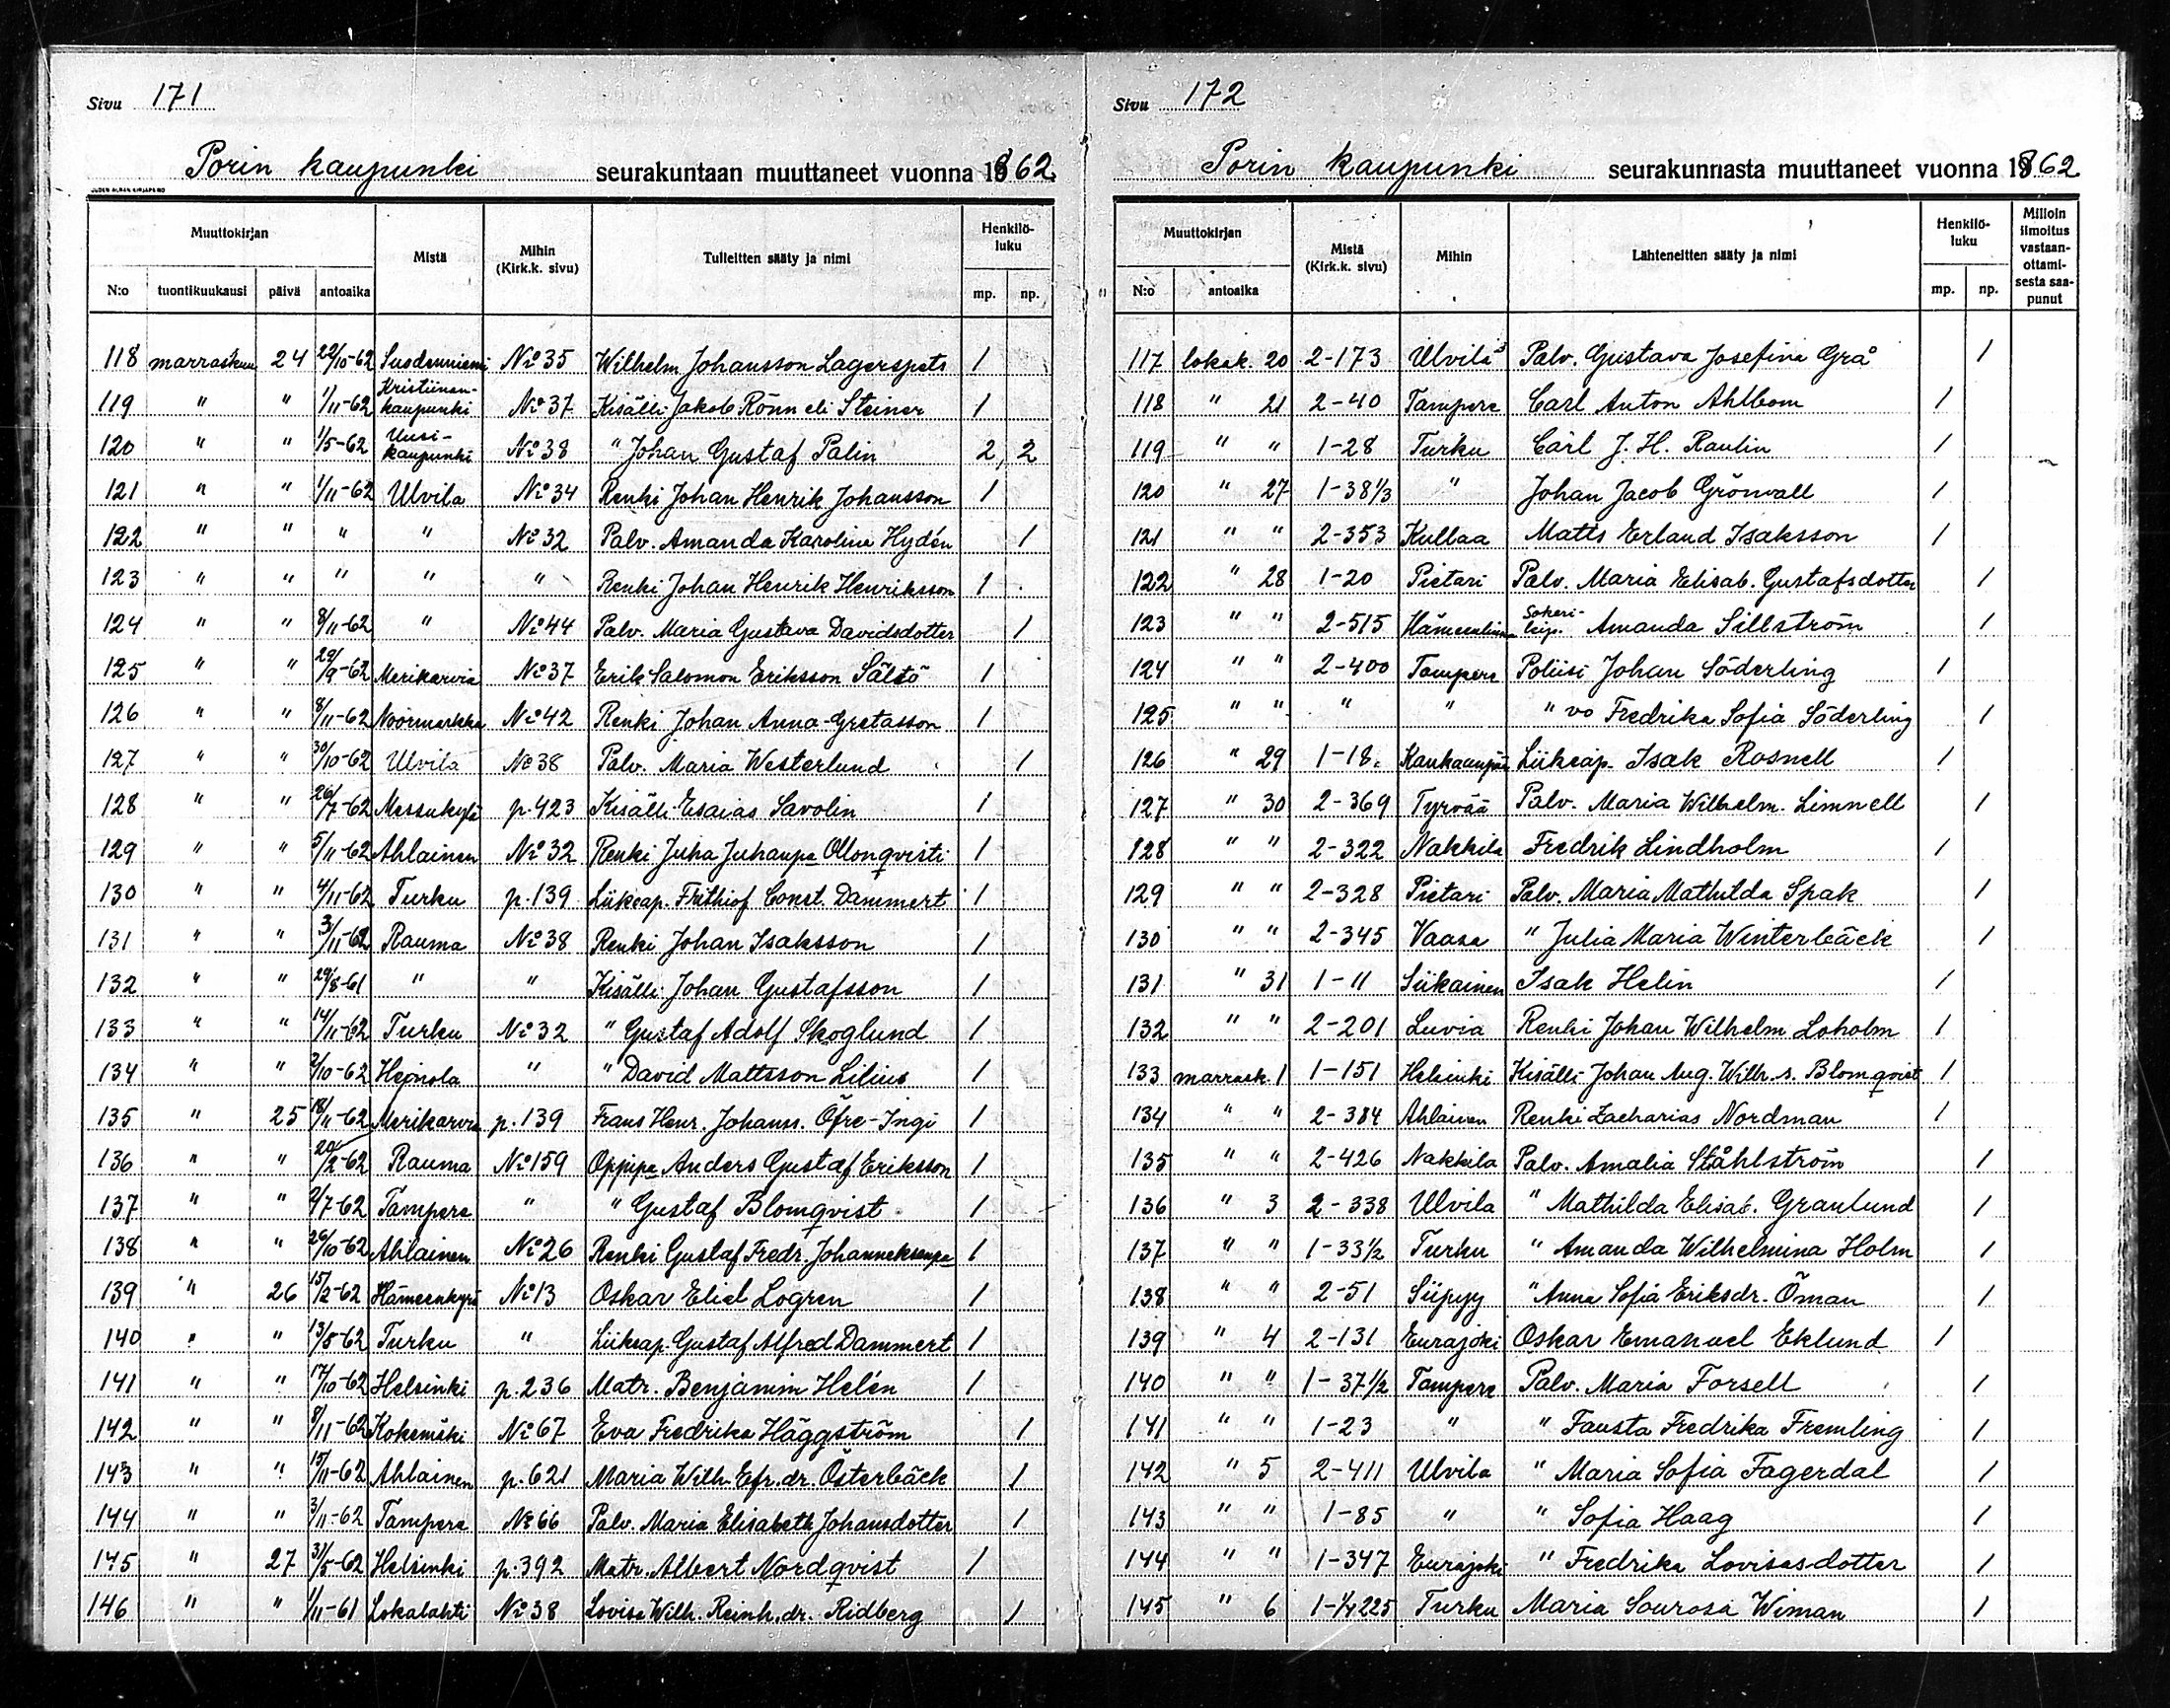 Sivu 171
Porin kaupunki seurakuntaan muuttaneet vuonna 1862
Muuttokirjan Mistä Mihin (Kirk.k. sivu) Tulleitten sääty ja nimi Henkilö-luku
N:o tuontikuukausi päivä antoaika mp. np.
118 marraskuu 24 22/10-62 Suodenniemi No 35 Wilhelm Johansson Lagerspets 1
119 " " 1/11-62 Kristiinan-kaupunki No 37 Kisälli Jakob Rönn eli Steiner 1
120 " " 1/5-62 Uusi-kaupunki No 38 " Johan Gustaf Palin 2, 2
121 " " 1/11-62 Ulvila No 34 Renki Johan Henrik Johansson 1
122 " " " " No 32 Palv. Amanda Karolina Hydén 1
123 " " " " " Renki Johan Henrik Henriksson 1
124 " " 8/11-62 " No 44 Palv. Maria Gustava Davidsdotter 1
125 " " 29/9-62 Merikarvia No 37 Erik Salomon Eriksson Sältö 1
126 " " 8/11-62 Noormarkku No 42 Renki Johan Anna-Gretasson 1
127 " " 30/10-62 Ulvila No 38 Palv. Maria Westerlund 1
128 " " 26/7-62 Messukylä p. 423 Kisälli Esaias Savolin 1
129 " " 5/11-62 Ahlainen No 32 Renki Juha Juhanpa Ollonqvisti 1
130 " " 4/11-62 Turku p. 139 Liikeap. Frithiof Const. Dammert 1
131 " " 3/11-62 Rauma No 38 Renki Johan Isaksson 1
132 " " 29/8-61 " " Kisälli Johan Gustafsson 1
133 " " 14/11-62 Turku No 32 " Gustaf Adolf Skoglund 1
134 " " 2/10-62 Heinola " " David Mattsson Lilius 1
135 " 25 18/11-62 Merikarvia p. 139 Frans Henr. Johanss. Öfre-Ingi 1
136 " " 20/2-62 Rauma No 159 Oppipa Anders Gustaf Eriksson 1
137 " " 2/7-62 Tampere " " Gustaf Blomqvist 1
138 " " 26/10-62 Ahlainen No 26 Renki Gustaf Fredr. Johanneksenpa 1
139 " 26 15/2-62 Hämeenkyrö No 13 Oskar Eliel Logren 1
140 " " 13/5-62 Turku " Liikeap. Gustaf Alfred Dammert 1
141 " " 17/10-62 Helsinki p. 236 Matr. Benjamin Helén 1
142 " " 8/11-62 Kokemäki No 67 Eva Fredrika Häggström 1
143 " " 15/11-62 Ahlainen p. 621 Maria Wilh. Efr. dr. Österbäck 1
144 " " 3/11-62 Tampere No 66 Palv. Maria Elisabeth Johansdotter 1
145 " 27 31/5-62 Helsinki p. 392 Matr. Albert Nordqvist 1
146 " " 1/11-61 Lokalahti No 38 Lovisa Wilh. Reinh. dr. Ridberg 1
Sivu 172
Porin kaupunki seurakunnasta muuttaneet vuonna 1862
Muuttokirjan Mistä (Kirk.k. sivu) Mihin Lähteneitten sääty ja nimi Henkilö-luku Milloin ilmoitus vastaan-ottami-sesta saa-punut
N:o antoaika mp. np.
117 lokak. 20 2-173 Ulvila Palv. Gustava Josefina Grå 1
118 " 21 2-40 Tampere Carl Anton Ahlbom 1
119 " " 1-28 Turku Carl J. H. Raulin 1
120 " 27 1-38 1/3 " Johan Jacob Grönvall 1
121 " " 2-353 Kullaa Matts Erland Isaksson 1
122 " 28 1-20 Pietari Palv. Maria Elisab. Gustafsdotter 1
123 " " 2-515 Hämeenlinna Sokeri-leip. Amanda Sillström 1
124 " " 2-400 Tampere Poliisi Johan Söderling 1
125 " " " " " vo Fredrika Sofia Söderling 1
126 " 29 1-18 Kaukaanpää Liikeap. Isak Rosnell 1
127 " 30 2-369 Tyrvää Palv. Maria Wilhelm. Limnell 1
128 " " 2-322 Nakkila Fredrik Lindholm 1
129 " " 2-328 Pietari Palv. Maria Mathilda Spak 1
130 " " 2-345 Vaasa " Julia Maria Winterbäck 1
131 " 31 1-11 Siikainen Isak Helin 1
132 " " 2-201 Luvia Renki Johan Wilhelm Loholm 1
133 marrask. 1 1-151 Helsinki Kisälli Johan Aug. Wilh. s. Blomqvist 1
134 " " 2-384 Ahlainen Renki Zacharias Nordman 1
135 " " 2-426 Nakkila Palv. Amalia Ståhlström 1
136 " 3 2-338 Ulvila " Mathilda Elisab. Granlund 1
137 " " 1-33 1/2 Turku " Amanda Wilhelmina Holm 1
138 " " 2-51 Siipyy " Anna Sofia Eriksdr. Öman 1
139 " 4 2-131 Eurajoki Oskar Emanuel Eklund 1
140 " " 1-37 1/2 Tampere Palv. Maria Forsell 1
141 " " 1-23 " " Fausta Fredrika Fremling 1
142 " 5 2-411 Ulvila " Maria Sofia Fagerdal 1
143 " " 1-85 " " Sofia Haag 1
144 " " 1-347 Eurajoki " Fredrika Lovisasdotter 1
145 " 6 1-1/4 225 Turku Maria Sourosa Wiman 1